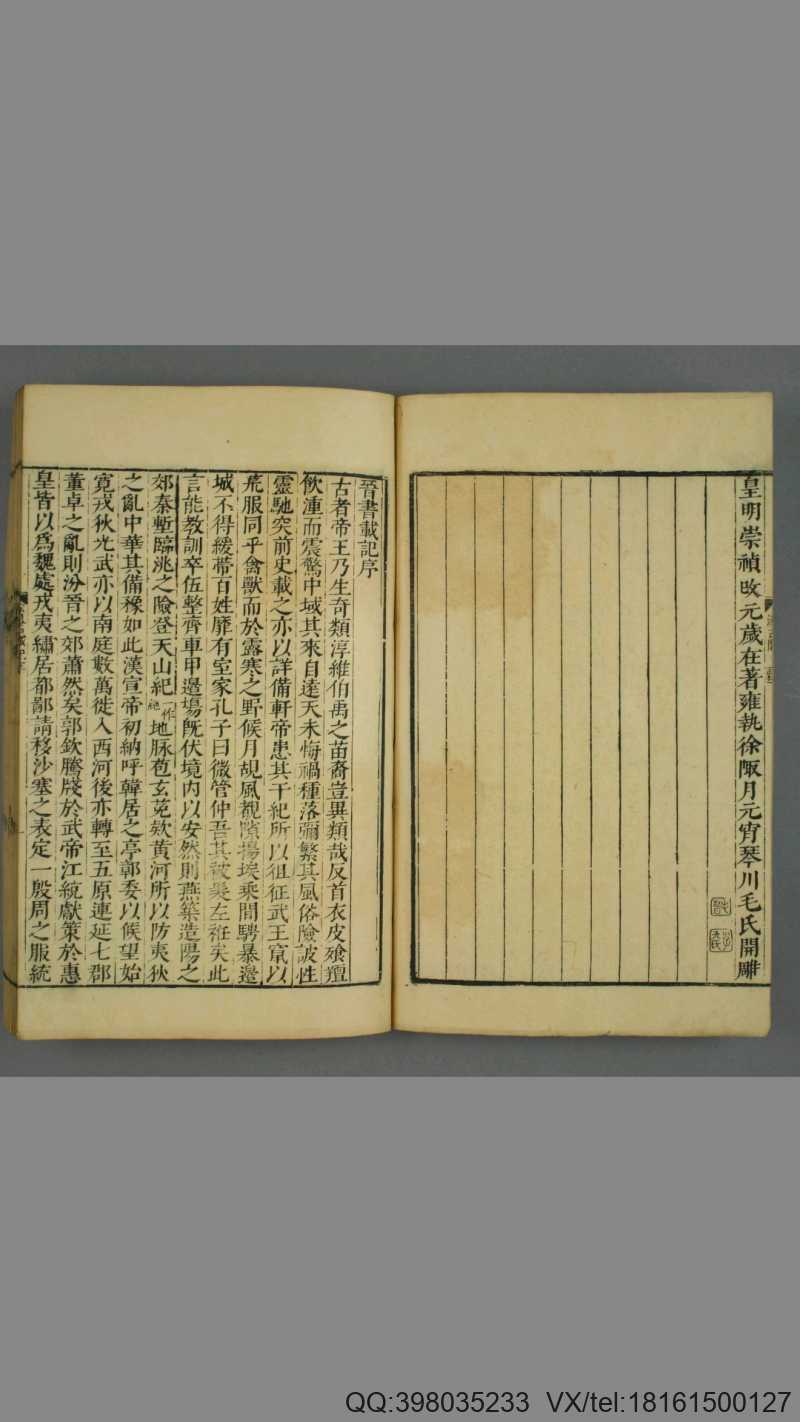 皇明崇禎改元歲在著雍執徐陬月元宵琴川毛氏開雕
晉書載記序
古者帝王乃生奇類淳維伯禹之苗裔豈異類哉反首衣皮飡羶
飲湩而震驚中域其來自遠天未悔禍種落彌繁其風俗險詖性
靈馳突前史載之亦以詳備軒帝患其干紀所以徂征武王竄以
荒服同乎禽獸而於露寒之野候月覘風覩隙揚埃乘間騁暴邊
城不得緩帶百姓靡有室家孔子曰微管仲吾其被髮左衽矣此
言能教訓卒伍整齊車甲邊場旣伏境內以安然則燕築造陽之
郊秦塹臨洮之險登天山紀一作絕地脉苞玄菟欵黃河所以防夷狄
之亂中華其備豫如此漢宣帝初納呼韓居之亭郭委以候望始
寬戎狄光武亦以南庭數萬徙入西河後亦轉至五原連延七郡
董卓之亂則汾晉之郊蕭然矣郭欽騰牋於武帝江統獻策於惠
皇皆以爲魏處戎夷繡居都鄙請移沙塞之表定一殷周之服統
QQ:398035233 VX/tel:18161500127